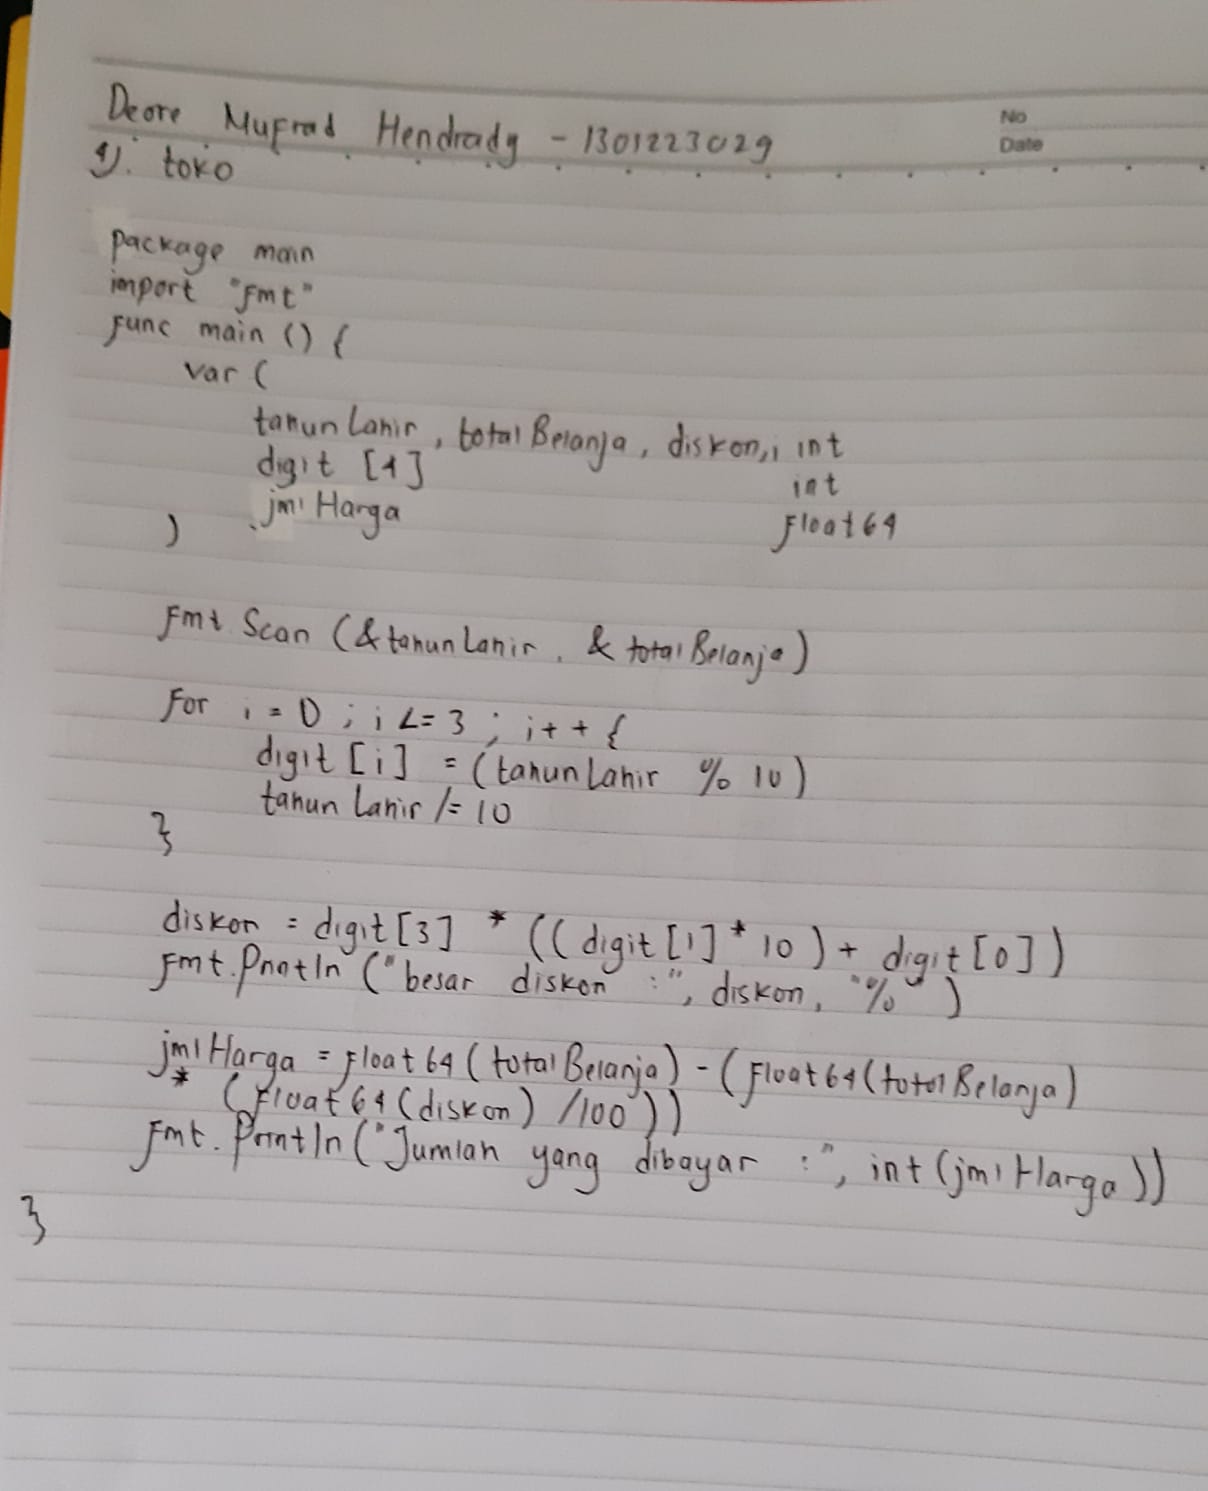 Deore Mufrad Hendrady - 1301223029
No
Date
1). toko
package main
import "fmt"
func main () {
var (
tahun Lahir, total Belanja, diskon, i int
digit [4] int
jml Harga float 64
)
fmt. Scan (& tahun Lahir, & total Belanja)
for i = 0 ; i <= 3 ; i + + {
digit [i] = (tahun Lahir % 10)
tahun Lahir /= 10
}
diskon = digit [3] * ((digit [1] * 10) + digit [0])
fmt. Println ("besar diskon :", diskon, "%")
jml Harga = float 64 (total Belanja) - (float 64 (total Belanja)
* (float 64 (diskon) /100))
fmt. Println ("Jumlah yang dibayar :", int (jml Harga))
}